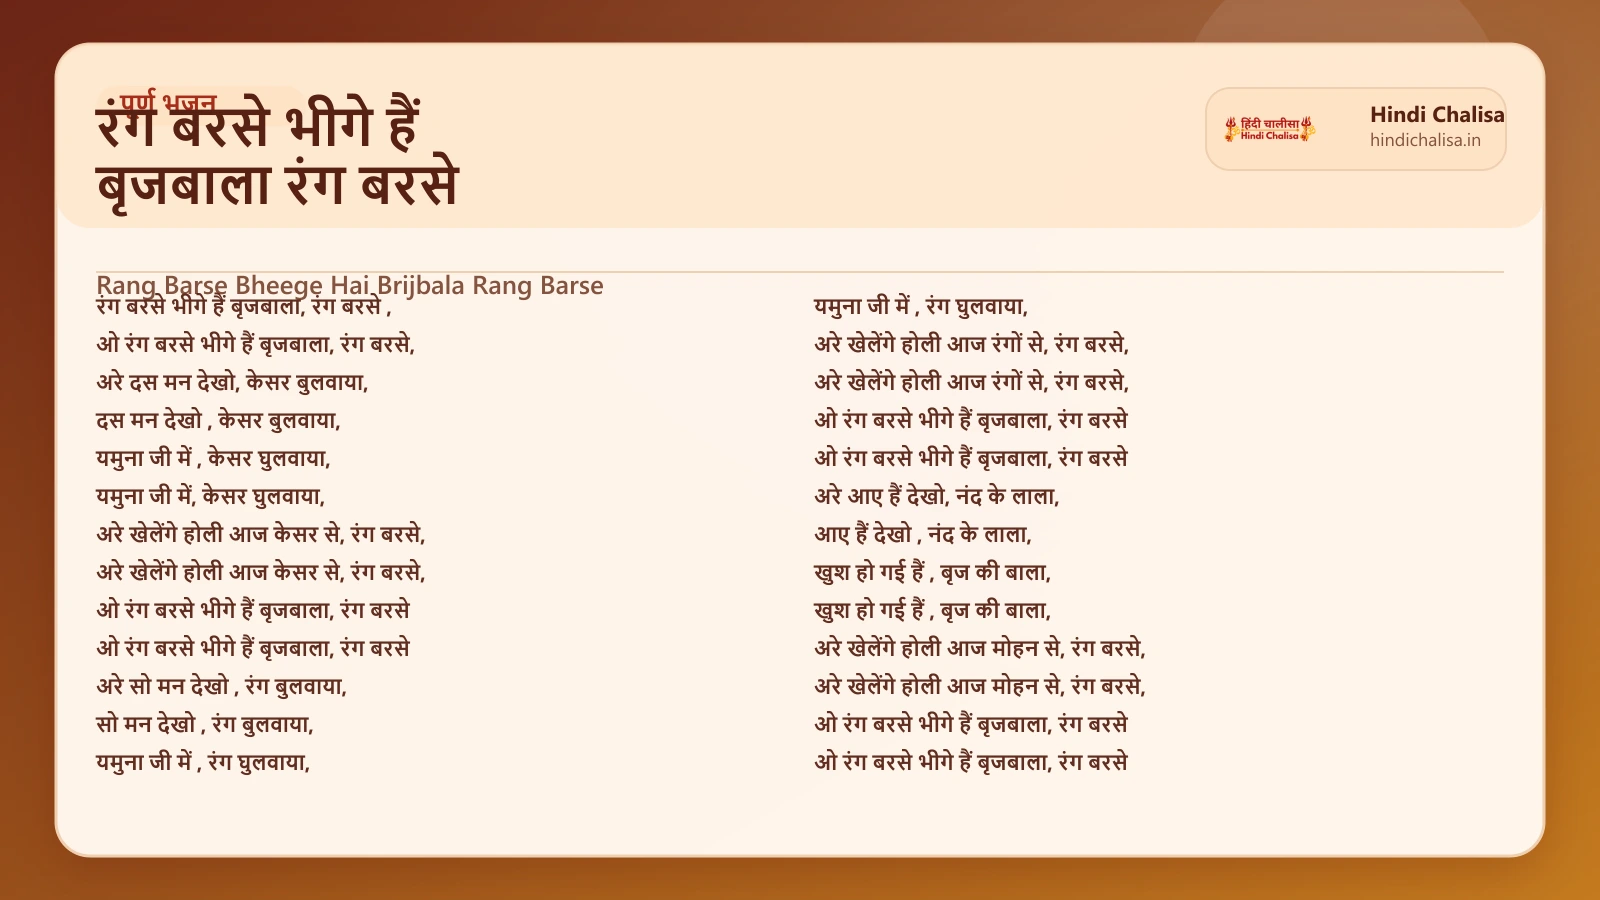 पूर्ण भजन
रंग बरसे भीगे हैं
बृजबाला रंग बरसे
हिंदी चालीसा
Hindi Chalisa
Hindi Chalisa
hindichalisa.in
Rang Barse Bheege Hai Brijbala Rang Barse
रंग बरसे भीगे हैं बृजबाला, रंग बरसे ,
ओ रंग बरसे भीगे हैं बृजबाला, रंग बरसे,
अरे दस मन देखो, केसर बुलवाया,
दस मन देखो , केसर बुलवाया,
यमुना जी में , केसर घुलवाया,
यमुना जी में, केसर घुलवाया,
अरे खेलेंगे होली आज केसर से, रंग बरसे,
अरे खेलेंगे होली आज केसर से, रंग बरसे,
ओ रंग बरसे भीगे हैं बृजबाला, रंग बरसे
ओ रंग बरसे भीगे हैं बृजबाला, रंग बरसे
अरे सो मन देखो , रंग बुलवाया,
सो मन देखो , रंग बुलवाया,
यमुना जी में , रंग घुलवाया,
यमुना जी में , रंग घुलवाया,
अरे खेलेंगे होली आज रंगों से, रंग बरसे,
अरे खेलेंगे होली आज रंगों से, रंग बरसे,
ओ रंग बरसे भीगे हैं बृजबाला, रंग बरसे
ओ रंग बरसे भीगे हैं बृजबाला, रंग बरसे
अरे आए हैं देखो, नंद के लाला,
आए हैं देखो , नंद के लाला,
खुश हो गई हैं , बृज की बाला,
खुश हो गई हैं , बृज की बाला,
अरे खेलेंगे होली आज मोहन से, रंग बरसे,
अरे खेलेंगे होली आज मोहन से, रंग बरसे,
ओ रंग बरसे भीगे हैं बृजबाला, रंग बरसे
ओ रंग बरसे भीगे हैं बृजबाला, रंग बरसे